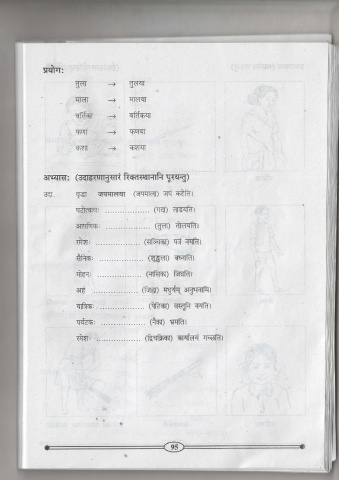 प्रयोगः
तुला → तुलया
माला → मालया
वर्तिका → वर्तिकया
फणा → फणया
कशा → कशया
अभ्यासः (उदाहरणानुसारं रिक्तस्थानानि पूरयन्तु)
उदा. वृद्धा जपमालया (जपमाला) जपं करोति।
................... (गदा) ताडयति।
आपणिकः ................... (तुला) तोलयति।
रमेशः ................... (सञ्चिका) पत्रं नयति।
सैनिकः ................... (शृङ्खला) बध्नाति।
मोहनः ................... (नासिका) जिघ्रति।
अहं ................... (जिह्वा) माधुर्यम् अनुभवामि।
यात्रिकः ................... (पेटिका) वस्तूनि नयति।
पर्यटकः ................... (नौका) भ्रमति।
रमेशः ................... (द्विचक्रिका) कार्यालयं गच्छति।
95